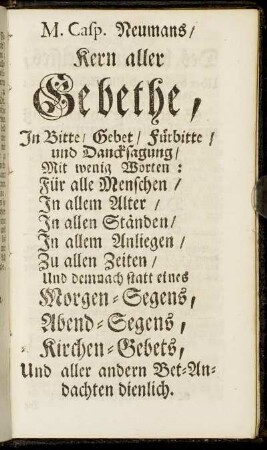 M. Casp. Neumans/
Kern aller
Gebethe,
In Bitte/ Gebet/ Fürbitte/
und Dancksagung/
Mit wenig Worten:
Für alle Menschen/
In allem Alter/
In allen Ständen/
In allem Anliegen/
Zu allen Zeiten/
Und demnach statt eines
Morgen-Segens,
Abend-Segens,
Kirchen-Gebets,
Und aller andern Bet-An-
dachten dienlich.